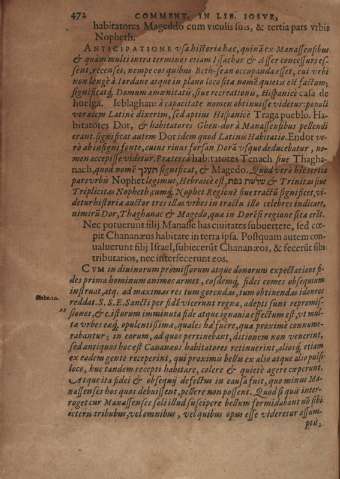 472 COMMENT. IN LIB. IOSVE,
habitatores Mageddo cum viculis suis, & tertia pars vrbis
Nopheth.
ANTICIPATIONE vsa historia hæc, quinã ex Manassensibus
& quam multi intra terminos etiam Issachar & Asser concessurι es-
sent, recenset, nempe eos quibus Beth-sean occupanda esset, cui vrbi
non longè à Iordane atque in plano loco sita nomē quietis est factum,
significatq́; Domum amœnitatis, siue recreationis, Hispanicè casa de
huelga. Ieblaghan à capacitate nomen obtinuisse videtur: populi
voracem Latinè dixerim, sed aptius Hispanicè Traga pueblo. Ha-
bitatores Dor, & habitatores Ghen-dor à Manassensibus pellendi
erant. significat autem Dor idem quod Latinis Habitatio. Endor ve-
rò ab insigni fonte, cuius riuus forsan Dorã vsque deducebatur, no-
men accepisse videtur. Præterea habitatores Tenach siue Thagha-
nach, quod nomē significat, & Magedo. Quod verò hic tertia
pars vrbis Nopheth legimus, Hebraicè est, Trinitas siue
Triplicitas Nopheth, cumq́; Nophet Regionē siue tractũ significet, vi-
detur historia auctor tres illas vrbes in tractu illo celebres indicare,
nimirũ Dor, Thaghanac & Magedo, qua in Dorēsi regione sita erāt.
Nec potuerunt filij Manasse has ciuitates subuertere, sed cœ-
pit Chananæus habitare in terra ipsa. Postquam autem con-
ualuerunt filij Israel, subiecerũt Chananæos, & fecerũt sibi
tributarios, nec interfecerunt eos.
CVM in diuinarum promissorum atque donorum expectatione fi-
des prima hominum animos armet, eosdemq́; fides comes obsequium
instruat, atq. ad maximas res tum gerendas, tum obtinendas idoneos
reddat. S. S. E. Sancti per fidē vicerunt regna, adepti sunt repromis-
siones, & c. istorum imminuta fide atque ignauia effectum est, vt mul-
ta vrbes eaq́; opulentissima, quales hâ fuere, qua proximè connume-
rabantur; in eorum, ad quos pertinebant, ditionem non venerint,
sed antiquos hac est Cananæos habitatores retinuerint, aliosq́; etiam
ex eadem gente receperint, qui proximis bellis ex alio atque alio pulsi
loco, huc tandem receptis habitare, colere & quietè agere cœperunt.
Atque ita fidei & obsequij defectus in causa fuit, quo minus Ma-
nassenses hos quos debuissent, pellere non possent. Quod si quã inter-
roget cur Manassenses solē illud suscipere bellum formidabant nō sibi
ceteris tribubus, vel omnibus, vel quibus opus esse videretur assum-
ptis,